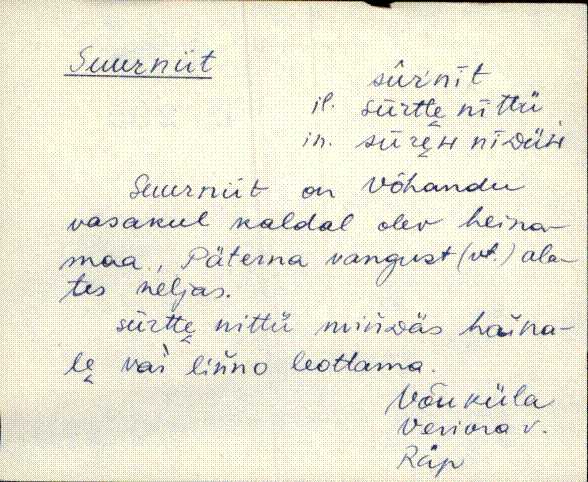 Suurniit
sūrnīt
il. sūrtte̮ nīttü
in. sūre̮н nīᴅüн
Suurniit on Võhandu
vasakul kaldal olev heina-
maa, Päterna vangust (vt.) ala-
tes neljas.
sūrtte̮ nittü minᴅäs haina-
le̮ vai linno leotlama.
Võuküla
Veriora v.
Räp